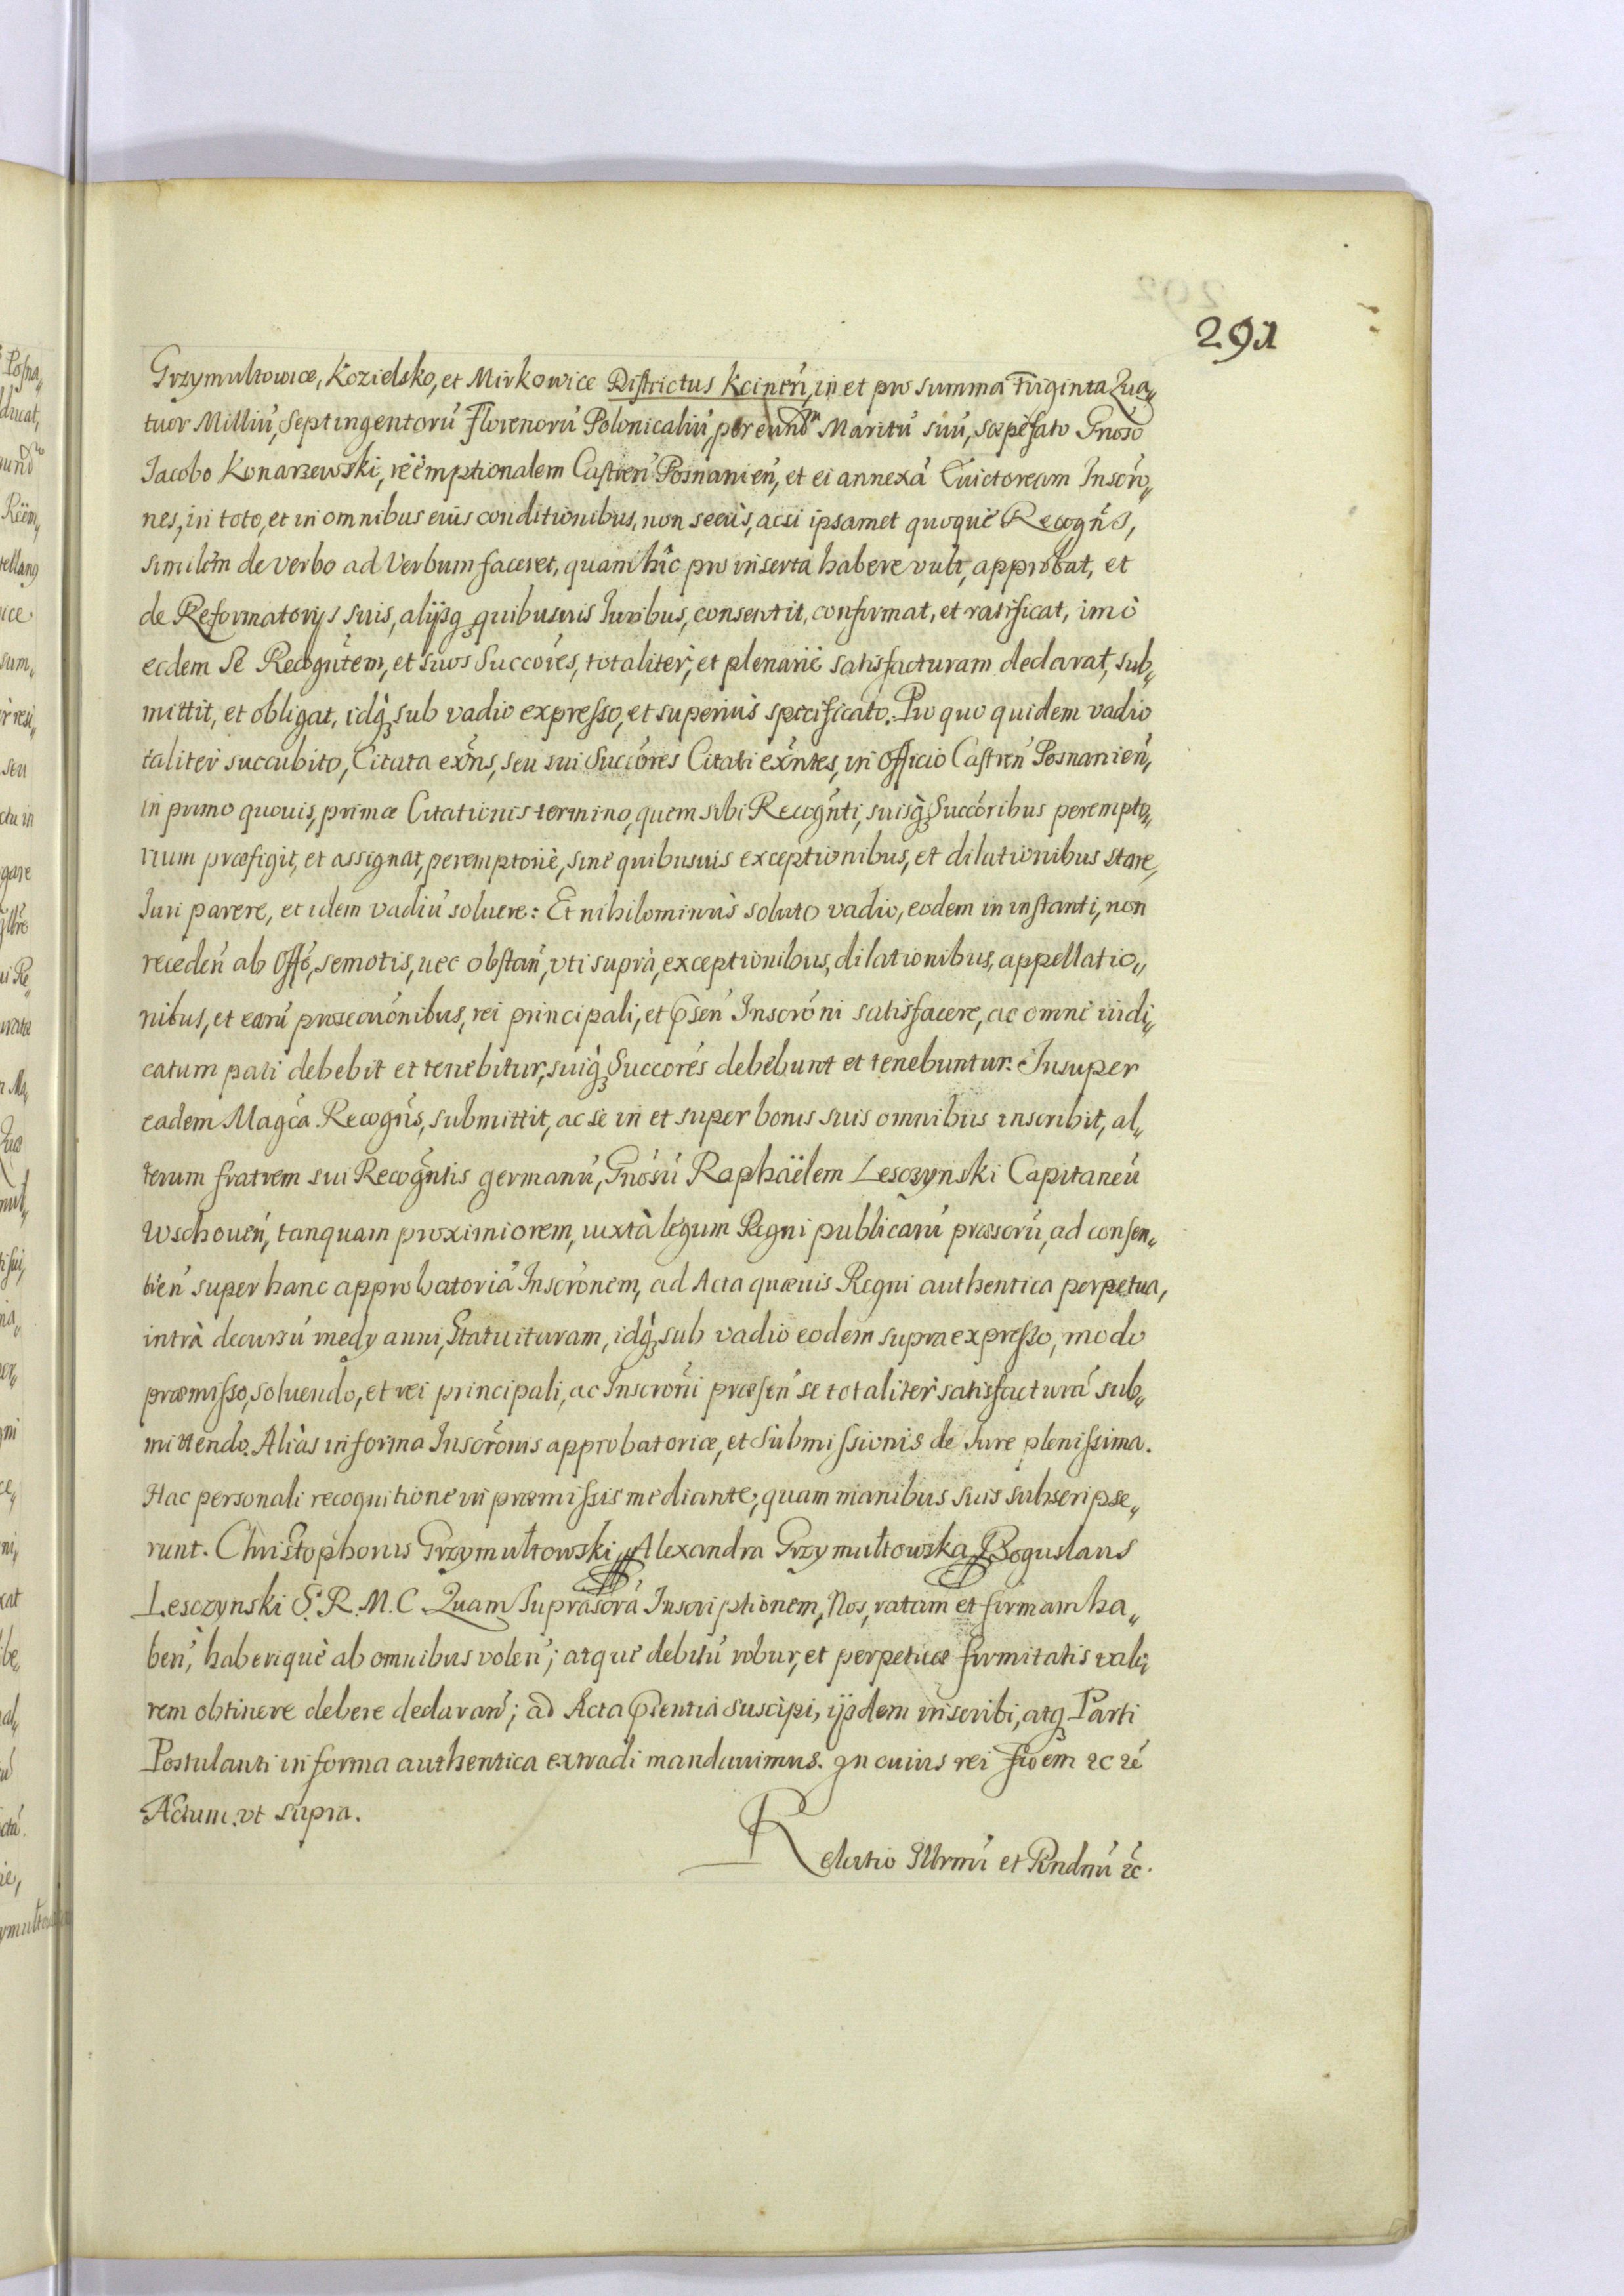 291
Grzymułtowice, Kozielsko, et Mirkowice Districtus Kcineń, in et pro summa Triginta Qua„
tuor Milliū, Septingentorū Florenorū Polonicaliū, per eundm Maritū suū, sæpèfato Gnoso
Jacobo Konarzewski, rëemptionalem Castren Posnanień, et ei annexā Euictoream Inscrō„
nes, in toto, et in omnibus eius conditionibus, non secùs, acsi ipsamet quoquè Recogñs,
similem de verbo ad Verbum faceret, quam hîc pro inserta habere vult, approbat, et
de Reformatorijs suis, alijsq quibusuis Juribus, consentit, confirmat, et ratificat, imò
eodem Se Recogñtem, et suos Succōres, totaliter, et plenariè satisfacturam declarat, sub„
mittit, et obligat, idq sub vadio expresso, et superiùs specificato. Pro quo quidem vadio
taliter succubito, Citata exñs, seu sui Succōres Citati exñtes, in Officio Castreń Posnanień,
in primo quouis, primæ Citationis termino, quem sibi Recogñti, suisq Succōribus perempto„
rium præfigit, et assignat, peremptoriè, sinè quibusuis exceptionibus, et dilationibus stare,
Juri parere, et idem vadiū soluere: Et nihilominùs soluto vadio, eodem in instanti, non
recedeń ab Offo, semotis, nec obstań, vti suprà, exceptionibus, dilationibus, appellatio„
nibus, et earū prosecuōnibus, rei principali, et pseń Inscrōni satisfacere, ac omne iudi„
catum pati debebit et tenebitur, suiq Succōres debebunt et tenebuntur. Insuper
eadem Magca Recogñs, submittit, ac se in et super bonis suis omnibus inscribit, al„
terum fratrem sui Recogñtis germanū, Gnosū Raphäelem Lesczynski Capitaneū
Wschoueń, tanquam proximiorem, iuxtà legum Regni publicarū præscrū, ad consen„
tień super hanc approbatoriā Inscrōnem, ad Acta quæuis Regni authentica perpetua,
intrà decursū medij anni, Statuituram, idq sub vadio eodem supra expresso, modo
præmisso, soluendo, et rei principali, ac Inscrōni præseń se totaliter satisfacturā sub„
mittendo. Aliàs in forma Inscrōnis approbatoriæ, et submissionis de Jure plenissima.
Hac personali recognitione in præmissis mediante, quam manibus suis subscripse„
runt. Christophorus Grzymułtowski, Alexandra Grzymułtowska, Boguslaus
Lesczynski S. R. M. C. Quam suprascrā Inscriptionem, Nos, ratam et firmam ha„
beń, haberiquè ab omnibus voleń; atquè debitū robur, et perpetuæ firmitatis valo„
rem obtinere debere declarań; ad Acta psentia suscipi, ijsdem inscribi, atq Parti
Postulanti in forma authentica extradi mandauimus. In cuius rei fidem &c &c
Actum. vt supra.
Relatio Illrmi et Rndmi &c.